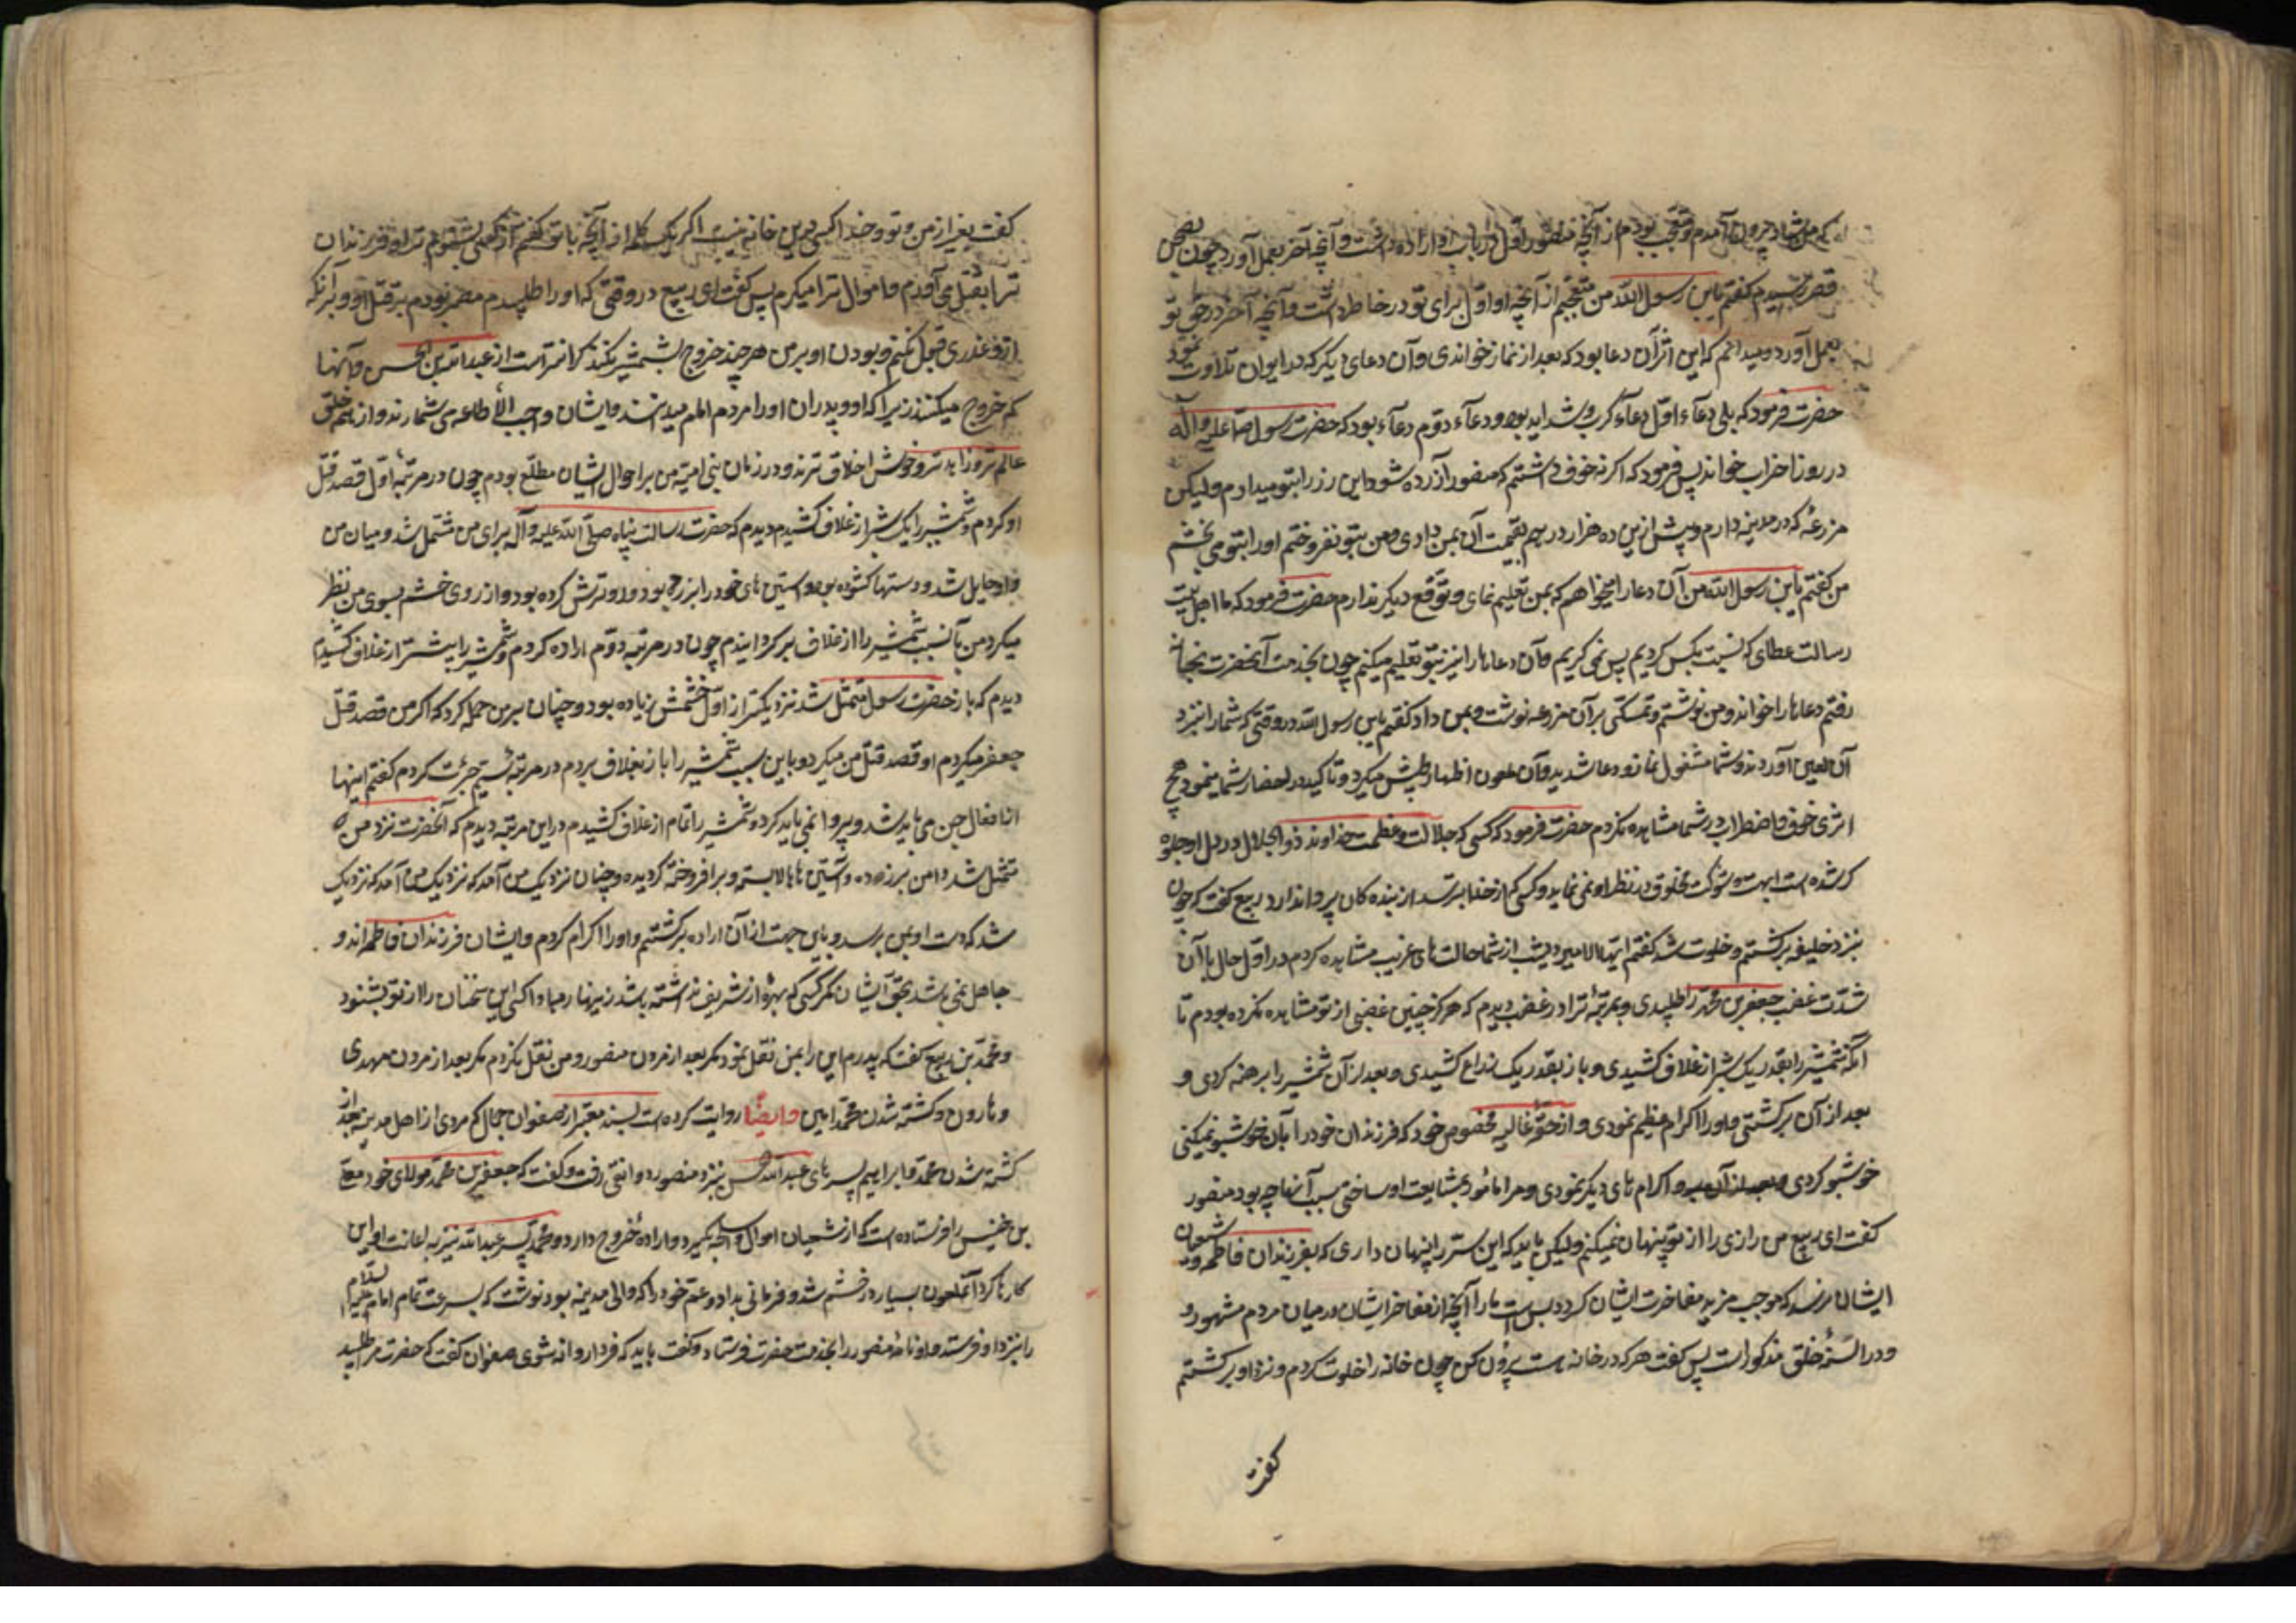 که من شاد بیرون آمدم و متعجب بودم از آنچه منصور اول در باب او اراده داشت و آنچه آخر بعمل آورد چون بصحن
قصر رسیدیم گفتم یابن رسول الله من متعجبم از آنچه او اول برای تو در خاطر داشت و آنچه آخر در حق تو
بعمل آورد و میدانم که این اثر آن دعا بود که بعد از نماز خواندی و آن دعای دیگر که در ایوان تلاوت نمود
حضرت فرمود که بلی دعاء اول دعاء کرب و شداید بود و دعاء دوّم دعاء بود که حضرت رسول صلّا علیه و آله
در روز احزاب خواند پس فرمود که اگر نه خوف داشتم که منصور آزرده شود این زر را بتو میدادم ولیکن
مزرعهٔ که در مدینه دارم و پیش ازین ده هزار درهم بقیمت آن بمن دادی و من بتو نفروختم او را بتو می بخشم
من گفتم یابن رسول الله من آن دعا را میخواهم که بمن تعلیم نمای و توقع دیگر ندارم حضرت فرمود که ما اهل بیت
رسالت عطای که نسبت بکس کردیم پس نمی گیریم و آن دعاها را نیز بتو تعلیم میکنم چون بخدمت آنحضرت بخانه
رفتم دعاها را خواند و من نوشتم و تمسکی برآن مزرعه نوشت و بمن داد گفتم یابن رسول الله در وقتی که شما را نزد
آن لعین آوردند و شما مشغول نماز و دعا شدید و آن ملعون اظهار طیش میکرد و تاکید در احضار شما مینمود هیچ
اثری خوف و اضطراب در شما مشاهده نکردم حضرت فرمود که کسی که جلالت و عظمت خداوند ذوالجلال در دل او جلوه
گر شده است ابهت و شوکت مخلوق در نظر او نمی نماید و کسی که از خدا بترسد از بنده کان پروا ندارد ربیع گفت که چون
بنزد خلیفه برگشتم و خلوت شد گفتم ایها الامیر دیشب از شما حالت های غریب مشاهده کردم در اول حال با آن
شدّت غضب جعفر بن محمد را طلبیدی و بمرتبهٔ ترا در غضب دیدم که هرگز چنین غضبی از تو مشاهده نکرده بودم تا
آنکه شمشیر را بقدر یک شبر از غلاف کشیدی و باز بقدر یک ذراع کشیدی و بعد از آن شمشیر را برهنه کردی و
بعد از آن برگشتی و او را اکرام عظیم نمودی و از حقهٔ غالیه مخصوص خود که فرزندان خود را بآن خوشبو نمیکنی
خوشبو کردی و اکرام های دیگر نمودی و مرا مامور بمشایعت او ساختی سبب آنها چه بود منصور
گفت ای ربیع من رازی را از تو پنهان نمیکنم ولیکن باید که این سرّ را پنهان داری که بفرزندان فاطمه و شیعیان
ایشان نرسد که موجب مزید مفاخرت ایشان گردد بس است ما را آنچه از مفاخر ایشان در میان مردم مشهور و
و در السنهٔ خلق مذکور است پس گفت هر که در خانه هست بیرون کن چون خانه را خلوت کردم و نزد او برگشتم
گفت
گفت بغیر از من و تو و خدا کسی درین خانه نیست اگر یک کلمه از آنچه با تو گفتم از کسی بشنوم ترا و فرزندان
ترا بقتل می آورم و اموال ترا میگیرم پس گفت ای ربیع در وقتی که او را طلبیدم مصر بودم بر قتل او و برآنکه
ازو عذری قبول نکنم و بودن او بر من هر چند خروج بشمشیر نکند گرانتر است از عبدالله بن الحسن و آنها
که خروج میکنند زیرا که او و پدران او را مردم امام میدانند و ایشان را واجب الاطاعه می شمارند و از همه خلق
عالم تر و زاهد تر و خوش اخلاق ترند و در زمان بنی امیّه من بر احوال ایشان مطلع بودم چون در مرتبهٔ اول قصد قتل
او کردم و شمشیر را یک شبر از غلاف کشیدم دیدم که حضرت رسالت پناه صلی الله علیه و آله برای من متمثل شد و میان من
و او حایل شد و دستها گشوده بود و آستین های خود را برزده بود و رو ترش کرده بود و از روی خشم بسوی من نظر
میکرد من بآن سبب شمشیر را از غلاف برگردانیدم چون در مرتبه دوّم اراده کردم و شمشیر را بیشتر از غلاف کشیدم
دیدم که باز حضرت رسول متمثل شد نزدیکتر از اول و خشمش زیاده بود و چنان بر من حمله کرد که اگر من قصد قتل
جعفر میکردم او قصد قتل من میکرد و باین سبب شمشیر را باز بغلاف بردم در مرتبهٔ سیم جرئت کردم گفتم اینها
از افعال جن می باید شد و پروا نمی باید کرد و شمشیر را تمام از غلاف کشیدم در این مرتبه دیدم که آنحضرت نزد من
متمثل شد دامن برزده و آستین ها بالا بسته و برافروخته گردیده و چنان نزدیک من آمد که نزدیک من آمد که نزدیک
شد که دست او بمن برسد و باین جهت از آن اراده برگشتم و او را اکرام کردم و ایشان فرزندان فاطمه اند و
جاهل نمی باشد بحق ایشان مگر کسی که بهرهٔ از شریعت نداشته باشد زینهار مبادا کسی این سخنان را از تو بشنود
و محمد بن ربیع گفت که پدرم این را بمن نقل ننمود مگر بعد از مردن منصور و من نقل نکردم مگر بعد از مردن مهدی
و هارون و کشته شدن محمد امین و ایضًا روایت کرده است بسند معتبر از صفوان جمال که مردی از اهل مدینه بعد از
کشته شدن محمد و ابراهیم پسر های عبدالله حسن بنزد منصور دوانقی رفت و گفت که جعفر بن محمد مولای خود معلّی
بن خنیس را فرستاده است که از شیعیان اموال و اسلحه بگیرد و اراده خروج دارد و محمد پسر عبدالله نیز به اعانت او این
کارها کرد آنملعون بسیار در خشم شد و فرمانی بداود عمّ خود را که والی مدینه بود نوشت که بسرعت تمام امام علیه السلام
را بنزد او فرستد داود نامهٔ منصور را بخدمت حضرت فرستاد و گفت باید که فردا روانه شوی صفوان گفت که حضرت مرا طلبید